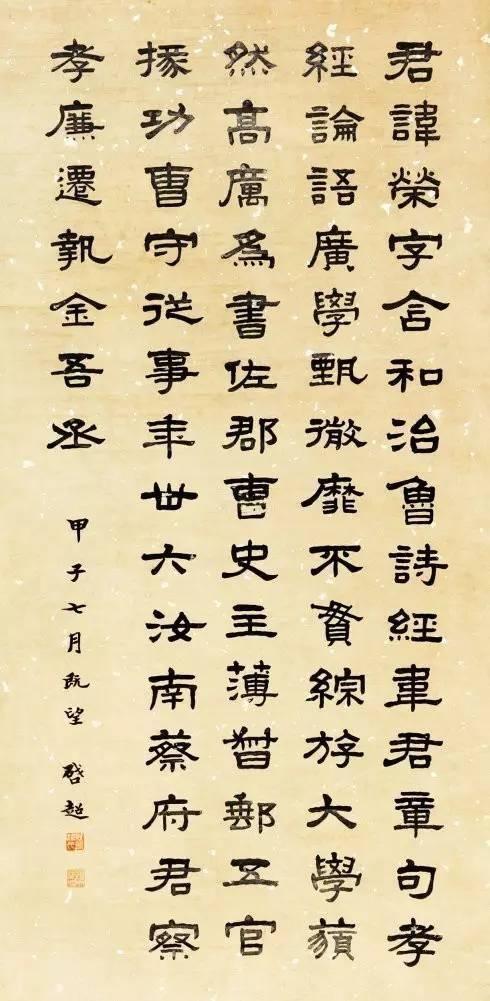 君諱榮字含和治魯詩經韋君章句孝
經論語廣學甄微靡不貫綜斿大學藐
然高厲爲書佐郡曹史主薄督郵五官
掾功曹守從事年卌六汝南蔡府君察
孝廉遷執金吾丞
甲子七月既望 啓超